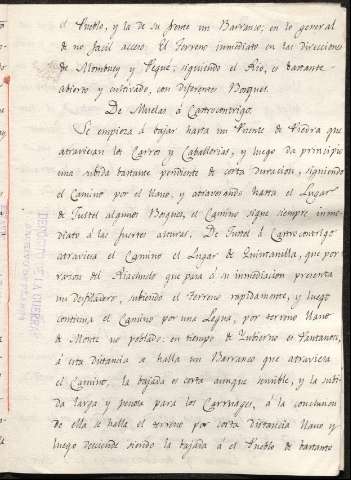 el Pueblo, y la de su frente un Barranco; en lo general
de no facil acceso. El Terreno inmediato en las direcciones
de Mombuey y Peque, siguiendo el Rio, es bastante
abierto y cultivado, con diferentes Bosques.
De Muelas á Castrocontrigo.
Se empieza á bajar hasta un Puente de Piedra que
atraviesan los Carros y Caballerias, y luego da principio
una subida bastante pendiente de corta duracion, siguiendo
el Camino por el llano, y atravesando hasta el Lugar
de Justel algunos Bosques, el Camino sigue siempre inme-
diato á las fuertes alturas. De Justel á Castrocontrigo
atraviesa el Camino el Lugar de Quintanilla, que por
razon del Riachuelo que pasa á su inmediacion presenta
un desfiladero, subiendo el terreno rapidamente, y luego
continua el Camino por una Legua, por terreno llano
de Monte no poblado: en tiempo de Imbierno es Pantanoso,
á esta distancia se halla un Barranco que atraviesa
el Camino, la bajada es corta aunque sensible, y la subi-
da larga y penosa para los Carruages, á la conclusion
de ella se halla el terreno por corta distancia llano y
luego desciende siendo la bajada á el Pueblo de bastante
DEPOSITO DE LA GUERRA